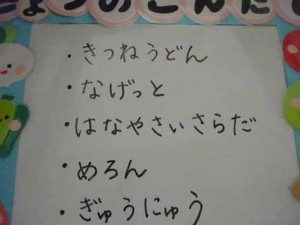 きょうのこんだて
・きつねうどん
・なげっと
・はなやさいさらだ
・めろん
・ぎゅうにゅう